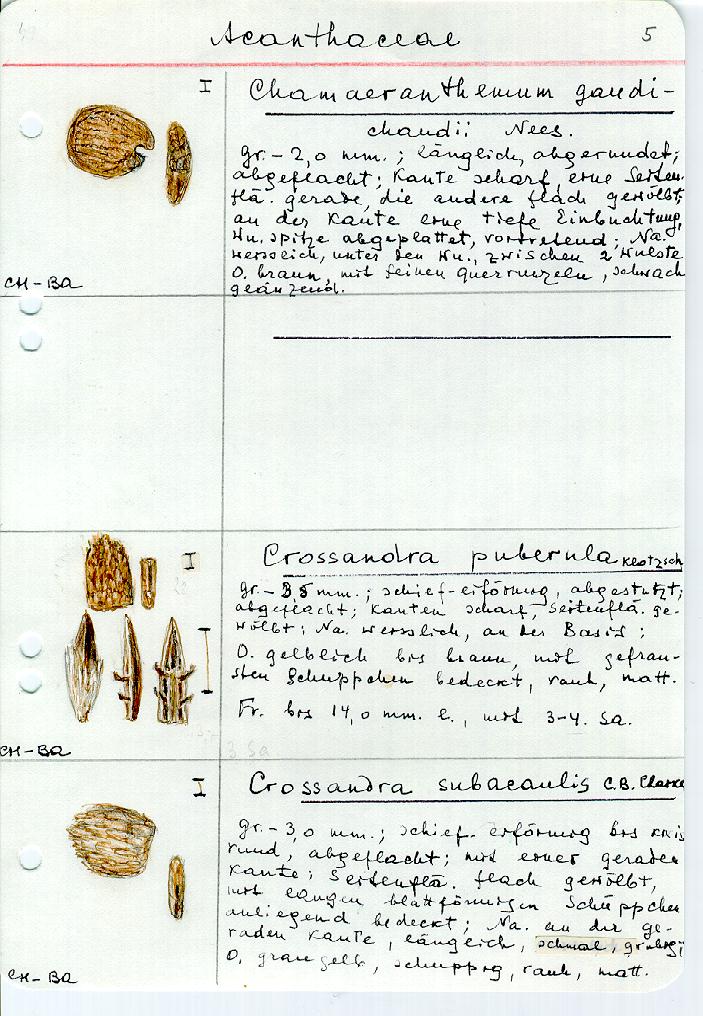 Acanthaceae 5
I
Chamaeranthemum gaudi-
chaudii Nees.
gr.- 2,0 mm.; länglich, abgerundet;
abgeflacht; Kante scharf, eine Seiten-
flä. gerade, die andere flach gewölbt;
an der Kante eine tiefe Einbuchtung,
Wu. spitze abgeplattet, vortretend; Na.
weisslich, unter den Wu., zwischen 2 Wülste
O. braun, mit feinen Querrunzeln, schwach
glänzend.
CH-BA
I
Crossandra puberula Klotzsch
gr.- 3,5 mm.; schief-eiförmig, abgestutzt;
abgeflacht; Kanten scharf, Seitenflä. ge-
wölbt; Na. weisslich, an der Basis;
O. gelblich bis braun, mit gefran-
sten Schuppchen bedeckt, rauh, matt.
Fr. bis 14,0 mm. l., mit 3-4. Sa.
CH-BA
3 Sa
I
Crossandra subacaulis C.B. Clarke
gr.- 3,0 mm.; schief-eiförmig bis kreis
rund, abgeflacht; mit einer geraden
Kante; Seitenflä. flach gewölbt,
mit langen blattförmigen Schüppchen
anliegend bedeckt; Na. an der ge-
raden Kante, längeich, schmal, grubig;
O. graugelb, schuppig, rauh, matt.
CH-BA